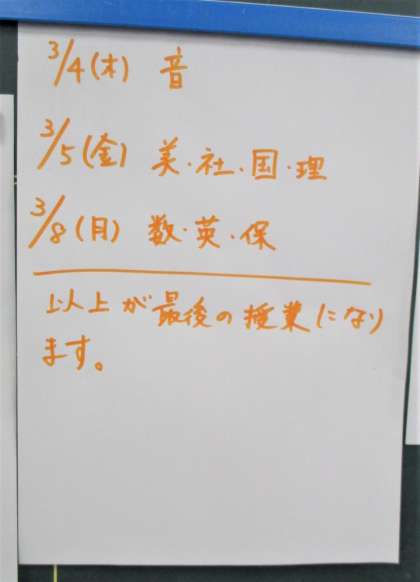 3/4(木) 音
3/5(金) 美・社・国・理
3/8(月) 数・英・保
以上が最後の授業になり
ます。